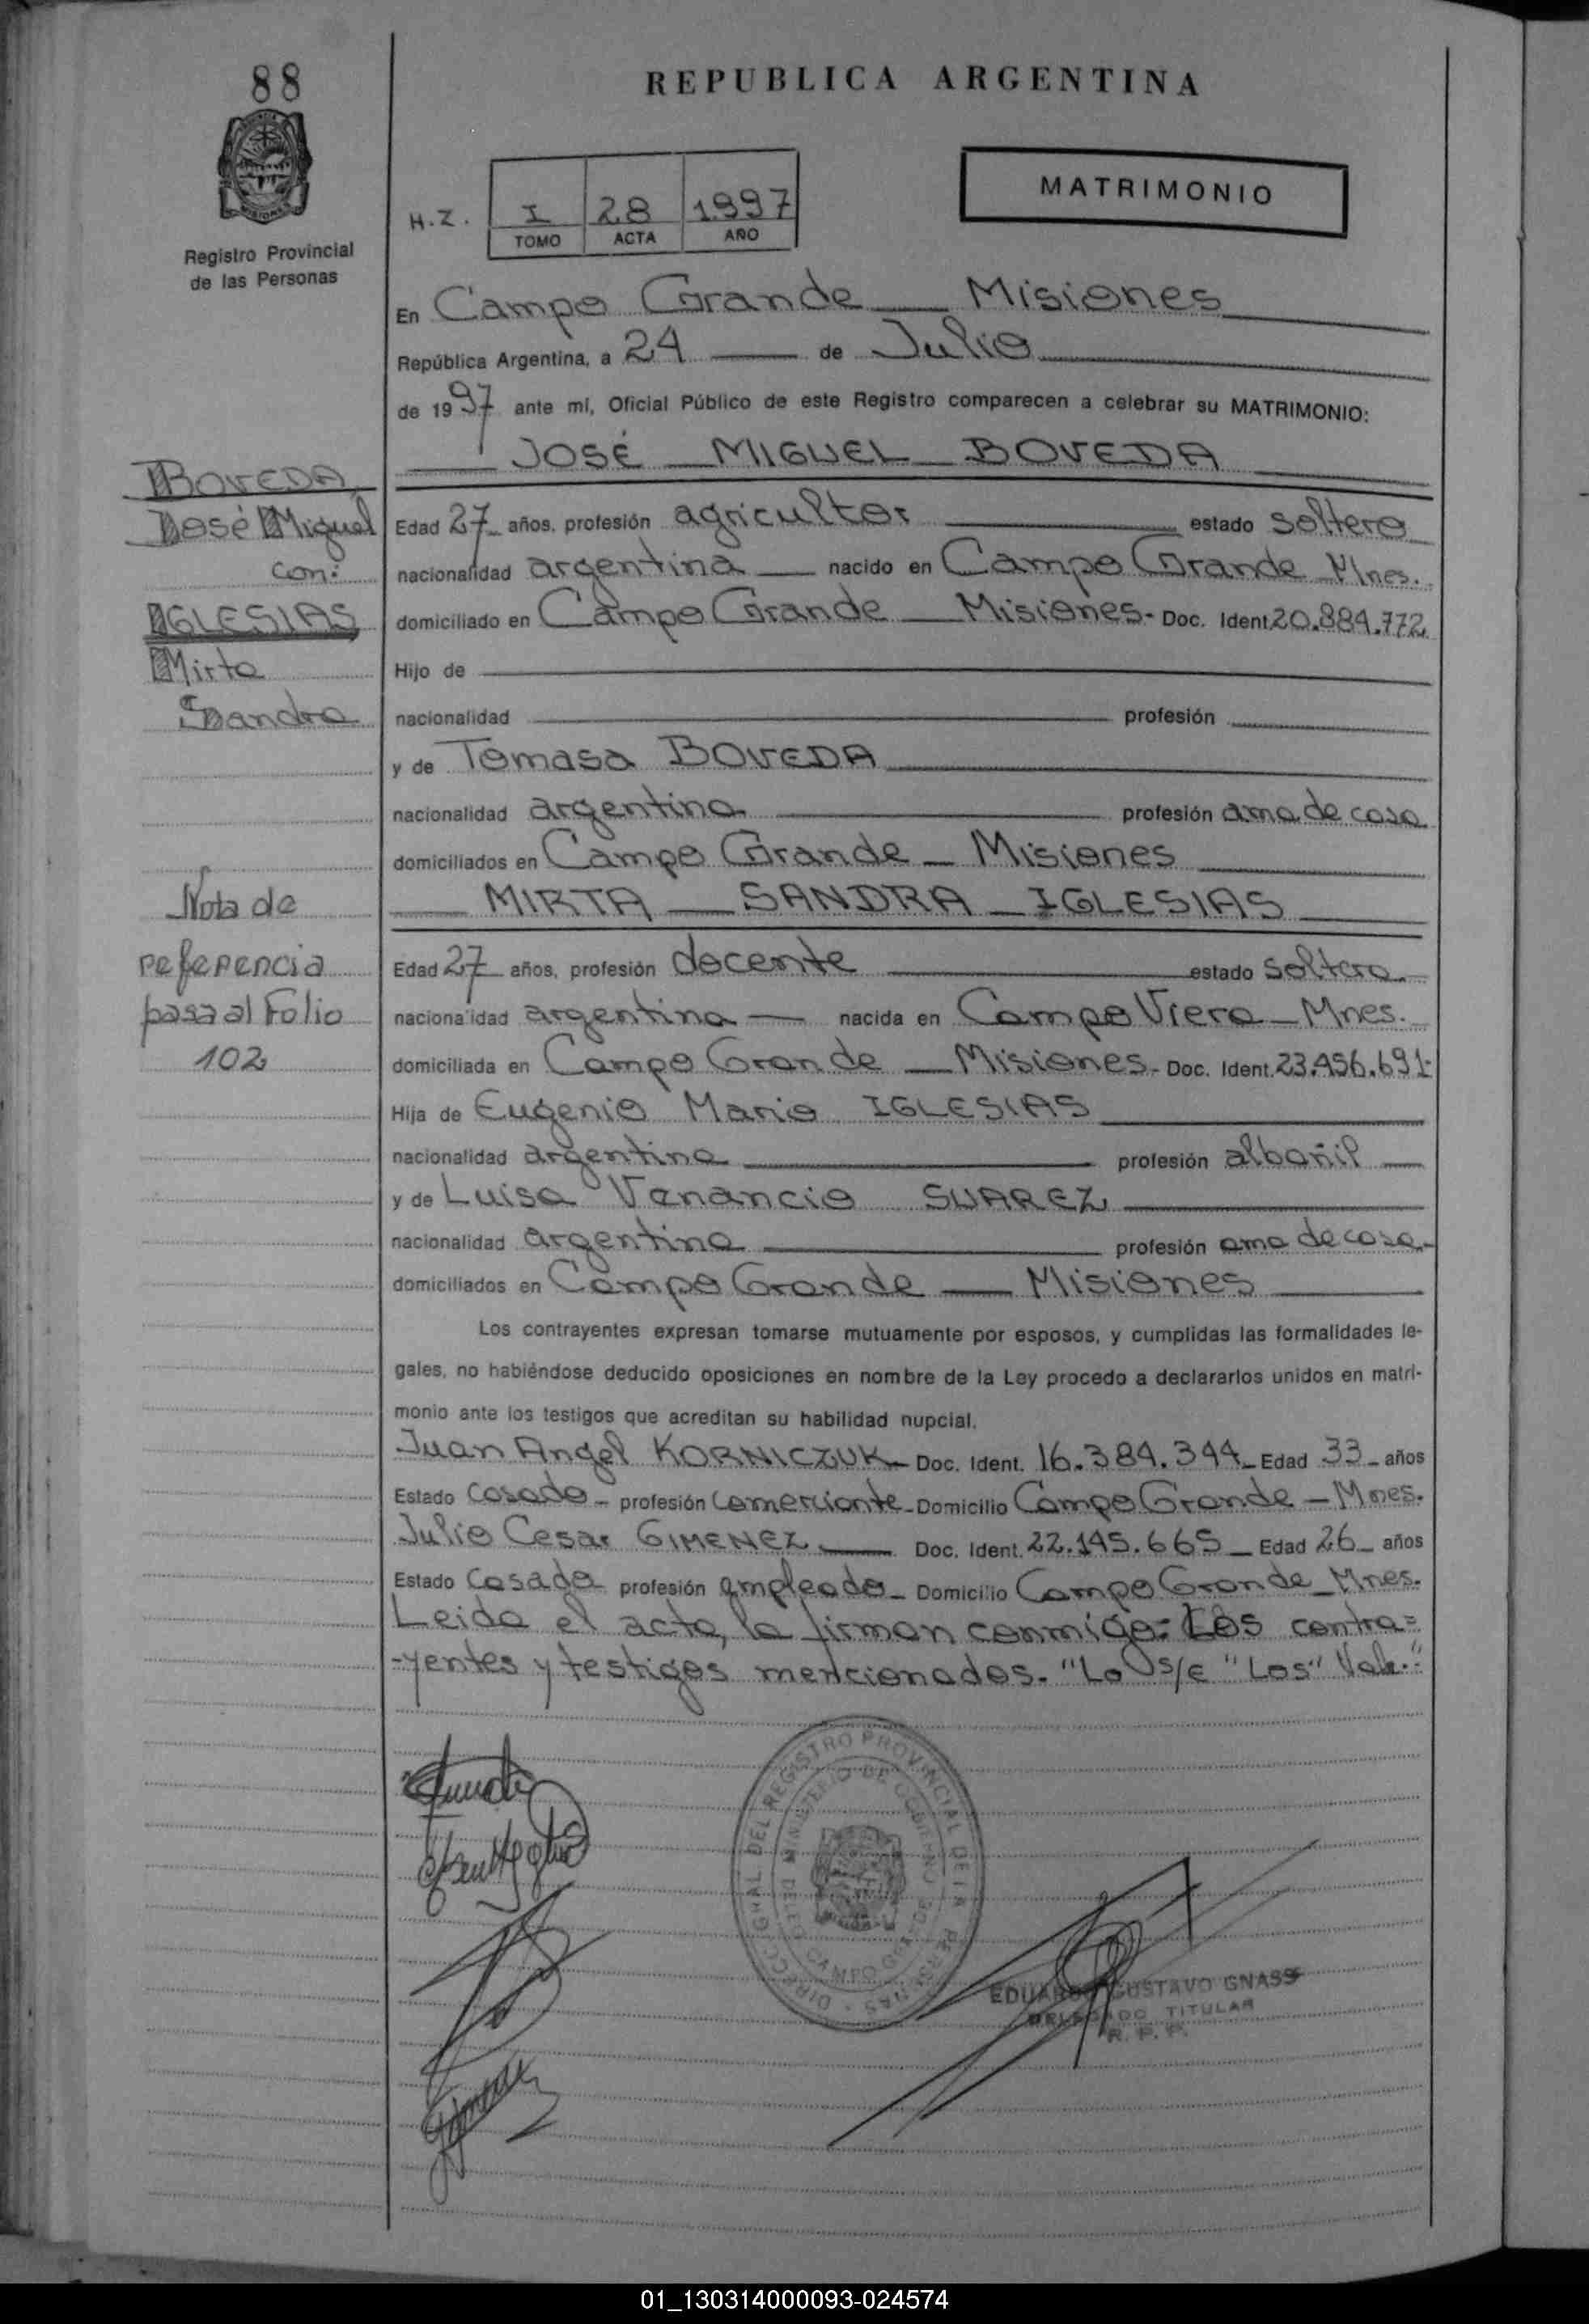 88
REPUBLICA ARGENTINA
MATRIMONIO
H.Z. I 28 1997
TOMO ACTA AÑO
Registro Provincial
de las Personas
En Campo Grande Misiones
República Argentina, a 24 de Julio
de 1997 ante mí, Oficial Público de este Registro comparecen a celebrar su MATRIMONIO:
JOSÉ MIGUEL BOVEDA
BOVEDA
José Miguel
con:
IGLESIAS
Mirta
Sandra
Edad 27 años, profesión agricultor estado soltero
nacionalidad argentina nacido en Campo Grande Mnes.
domiciliado en Campo Grande Misiones- Doc. Ident 20.884.772
Hijo de
nacionalidad profesión
y de Tomasa BOVEDA
nacionalidad argentina profesión ama de casa
domiciliados en Campo Grande - Misiones
MIRTA SANDRA IGLESIAS
Nota de
referencia
pasa al Folio
102
Edad 27 años, profesión docente estado soltera
nacionalidad argentina nacida en Campo Viera - Mnes.
domiciliada en Campo Grande Misiones- Doc. Ident. 23.456.691-
Hija de Eugenio Mario IGLESIAS
nacionalidad argentina profesión albañil
y de Luisa Venancia SUAREZ
nacionalidad argentina profesión ama de casa-
domiciliados en Campo Grande Misiones
Los contrayentes expresan tomarse mutuamente por esposos, y cumplidas las formalidades le-
gales, no habiéndose deducido oposiciones en nombre de la Ley procedo a declararlos unidos en matri-
monio ante los testigos que acreditan su habilidad nupcial.
Juan Angel KORNICZUK Doc. Ident. 16.384.344 Edad 33 años
Estado Casado profesión Comerciante Domicilio Campo Grande - Mnes.
Julio Cesar GIMENEZ Doc. Ident. 22.145.665 Edad 26 años
Estado Casado profesión empleado Domicilio Campo Grande Mnes.
Leida el acta, la firman conmigo: Los contra=
-yentes y testigos mencionados. "Lo s/e "Los" Vale.-
DIRECCION GRAL. DEL REGISTRO PROVINCIAL DE LAS PERSONAS
MINISTERIO DE GOBIERNO
CAMPO GRANDE
EDUARDO GUSTAVO GNASS
DELEGADO TITULAR
R. P. P.
01_130314000093-024574